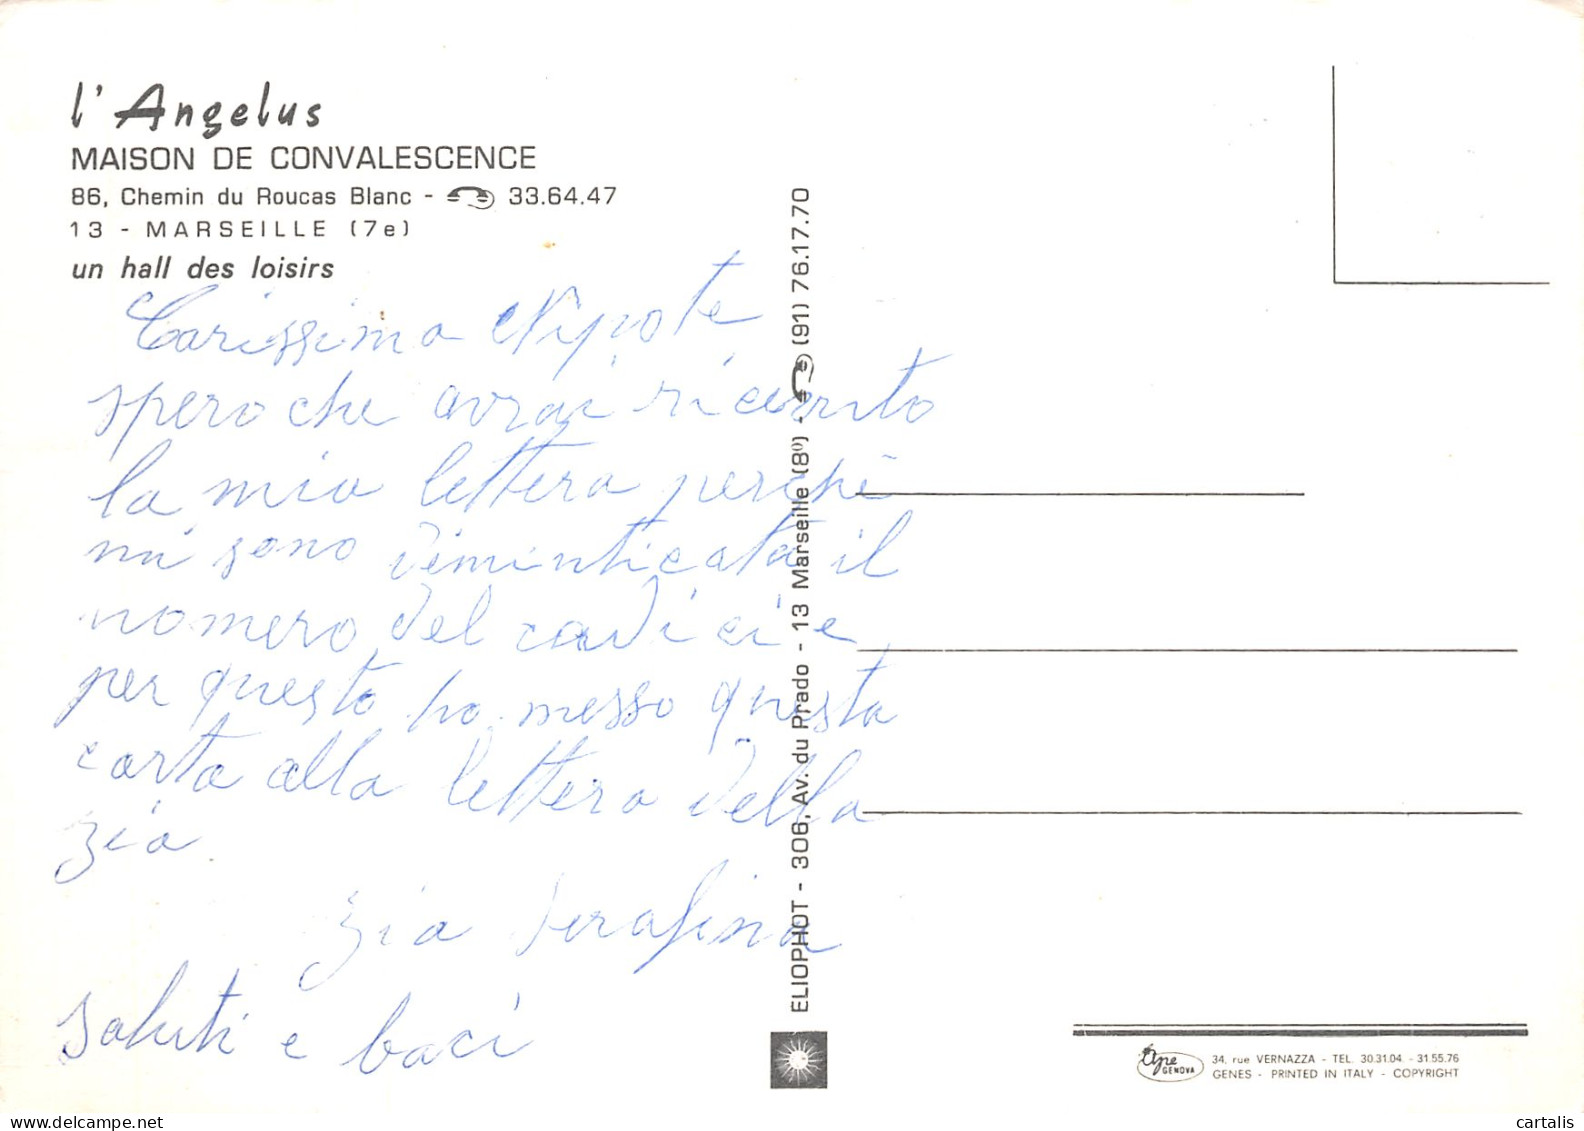 l'Angelus
MAISON DE CONVALESCENCE
86, Chemin du Roucas Blanc - 33.64.47
13 - MARSEILLE (7e)
un hall des loisirs
Carissima Nipote
spero che avrai ricevuto
la mia lettera perchè
mi sono dimenticata il
nomero del codici e
per questo ho messo questa
carta alla lettera della
zia
zia Serafina
saluti e baci
ELIOPHOT - 306, Av. du Prado - 13 Marseille (8e) - (91) 76.17.70
Ape
GENOVA
34, rue VERNAZZA - TEL. 30.31.04. - 31.55.76
GENES - PRINTED IN ITALY - COPYRIGHT
delcampe.net
cartalis